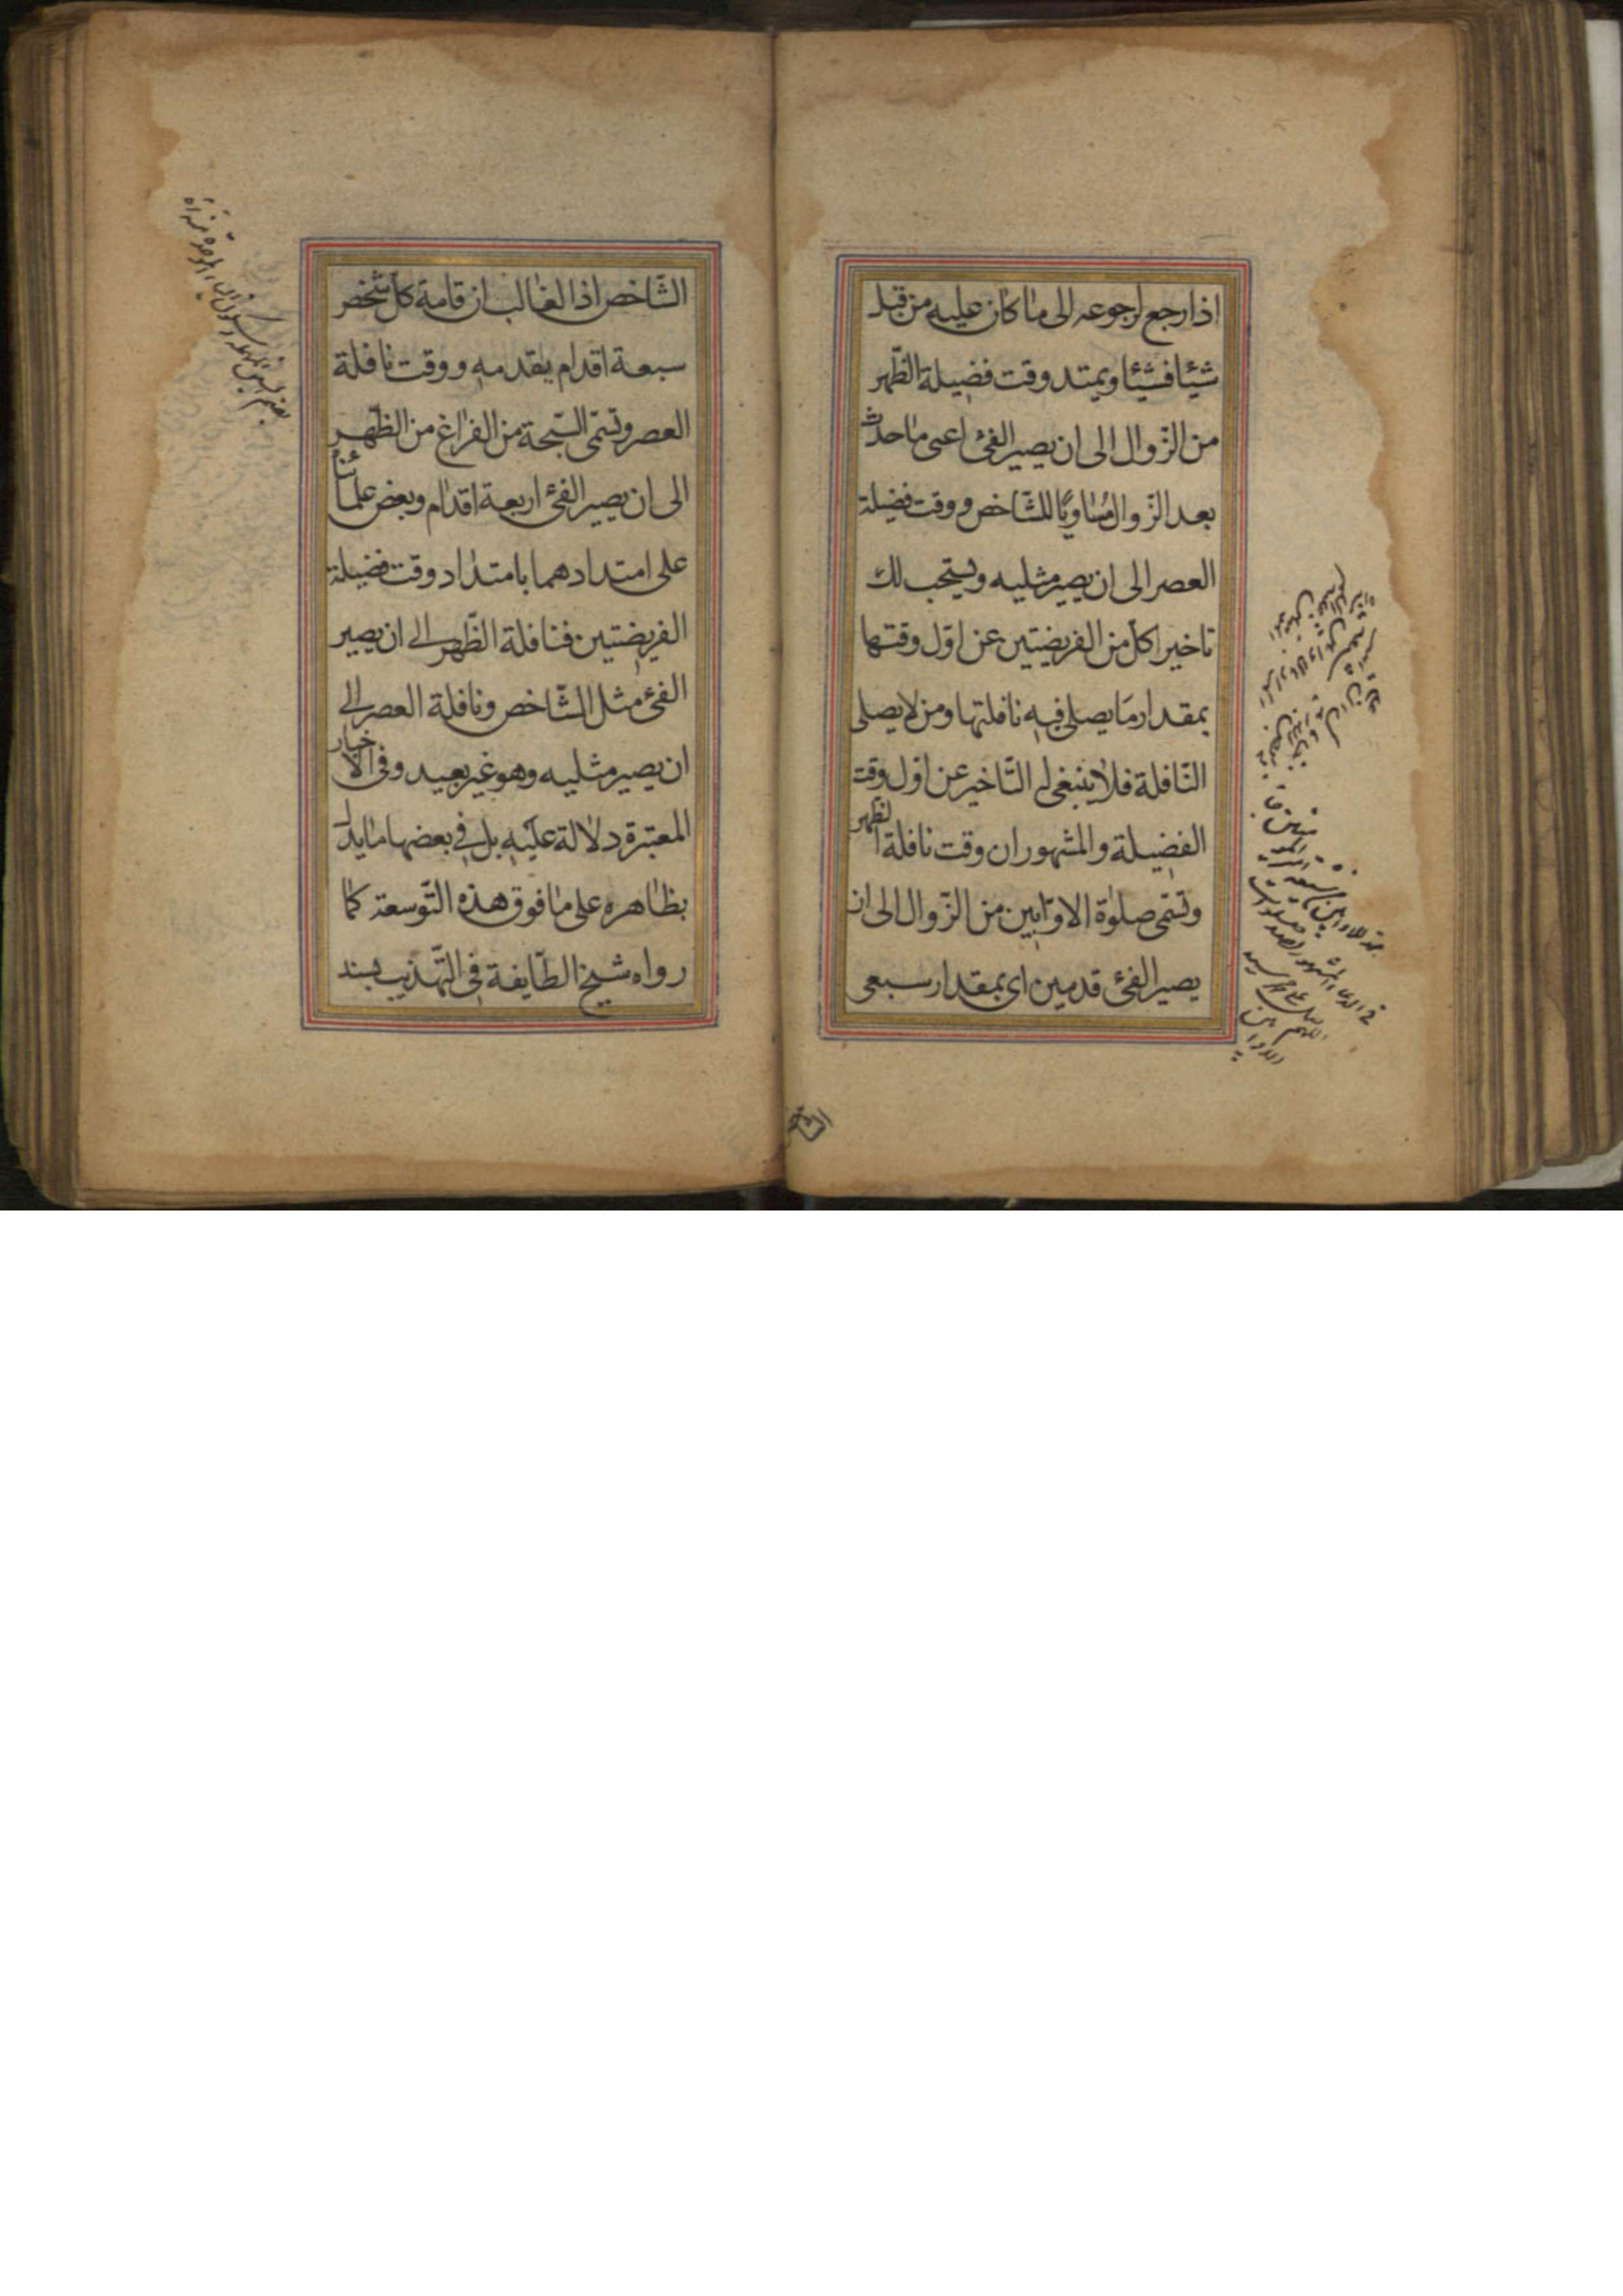 اذا رجع لرجوعه الى ما كان عليه من قبل
شيئا فشيئا ويمتد وقت فضيلة الظهر
من الزّوال الى ان يصير الفئ اعنى ما حدث
بعد الزّوال مُساويًا للشّاخص ووقت فضيلة
العصر الى ان يصير مثليه ويستحب لك
تاخير كلّ من الفريضتين عن اوّل وقتها
بمقدار مَا يصلى فيه نافلتها ومن لا يصلى
النّافلة فلا ينبغى له التّاخير عن اوّل وقت
الفضيلة والمشهور ان وقت نافلة الظهر
وتسمّى صلوٰة الاوّابين من الزّوال الى ان
يصير الفئ قدمين اى بمقدار سبعى
الشاخص
الشّاخص اذ الغالب ان قامة كلّ شخص
سبعة اقدام بقدمه ووقت نافلة
العصر وتسمّى السّبحة من الفراغ من الظّهر
الى ان يصير الفئ اربعة اقدام وبعض علمائنا
على امتدادهما بامتداد وقت فضيلة
الفريضتين فنافلة الظّهر الى ان يصير
الفئ مثل الشّاخص ونافلة العصر الى
ان يصير مثليه وهو غير بعيد وفى الاخبار
المعتبرة دلالة عليه بل فى بعضها ما يدل
بظاهره على ما فوق هذه التّوسعة كما
رواه شيخ الطّايفة فى التّهذيب بسند